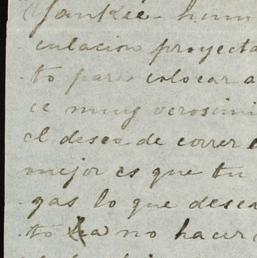 Yankee - hum
culacion proyecta
to para colocar a
ce muy verosimi
el deseo de correr
mejor es que tu
gas lo que desea
to no hacer